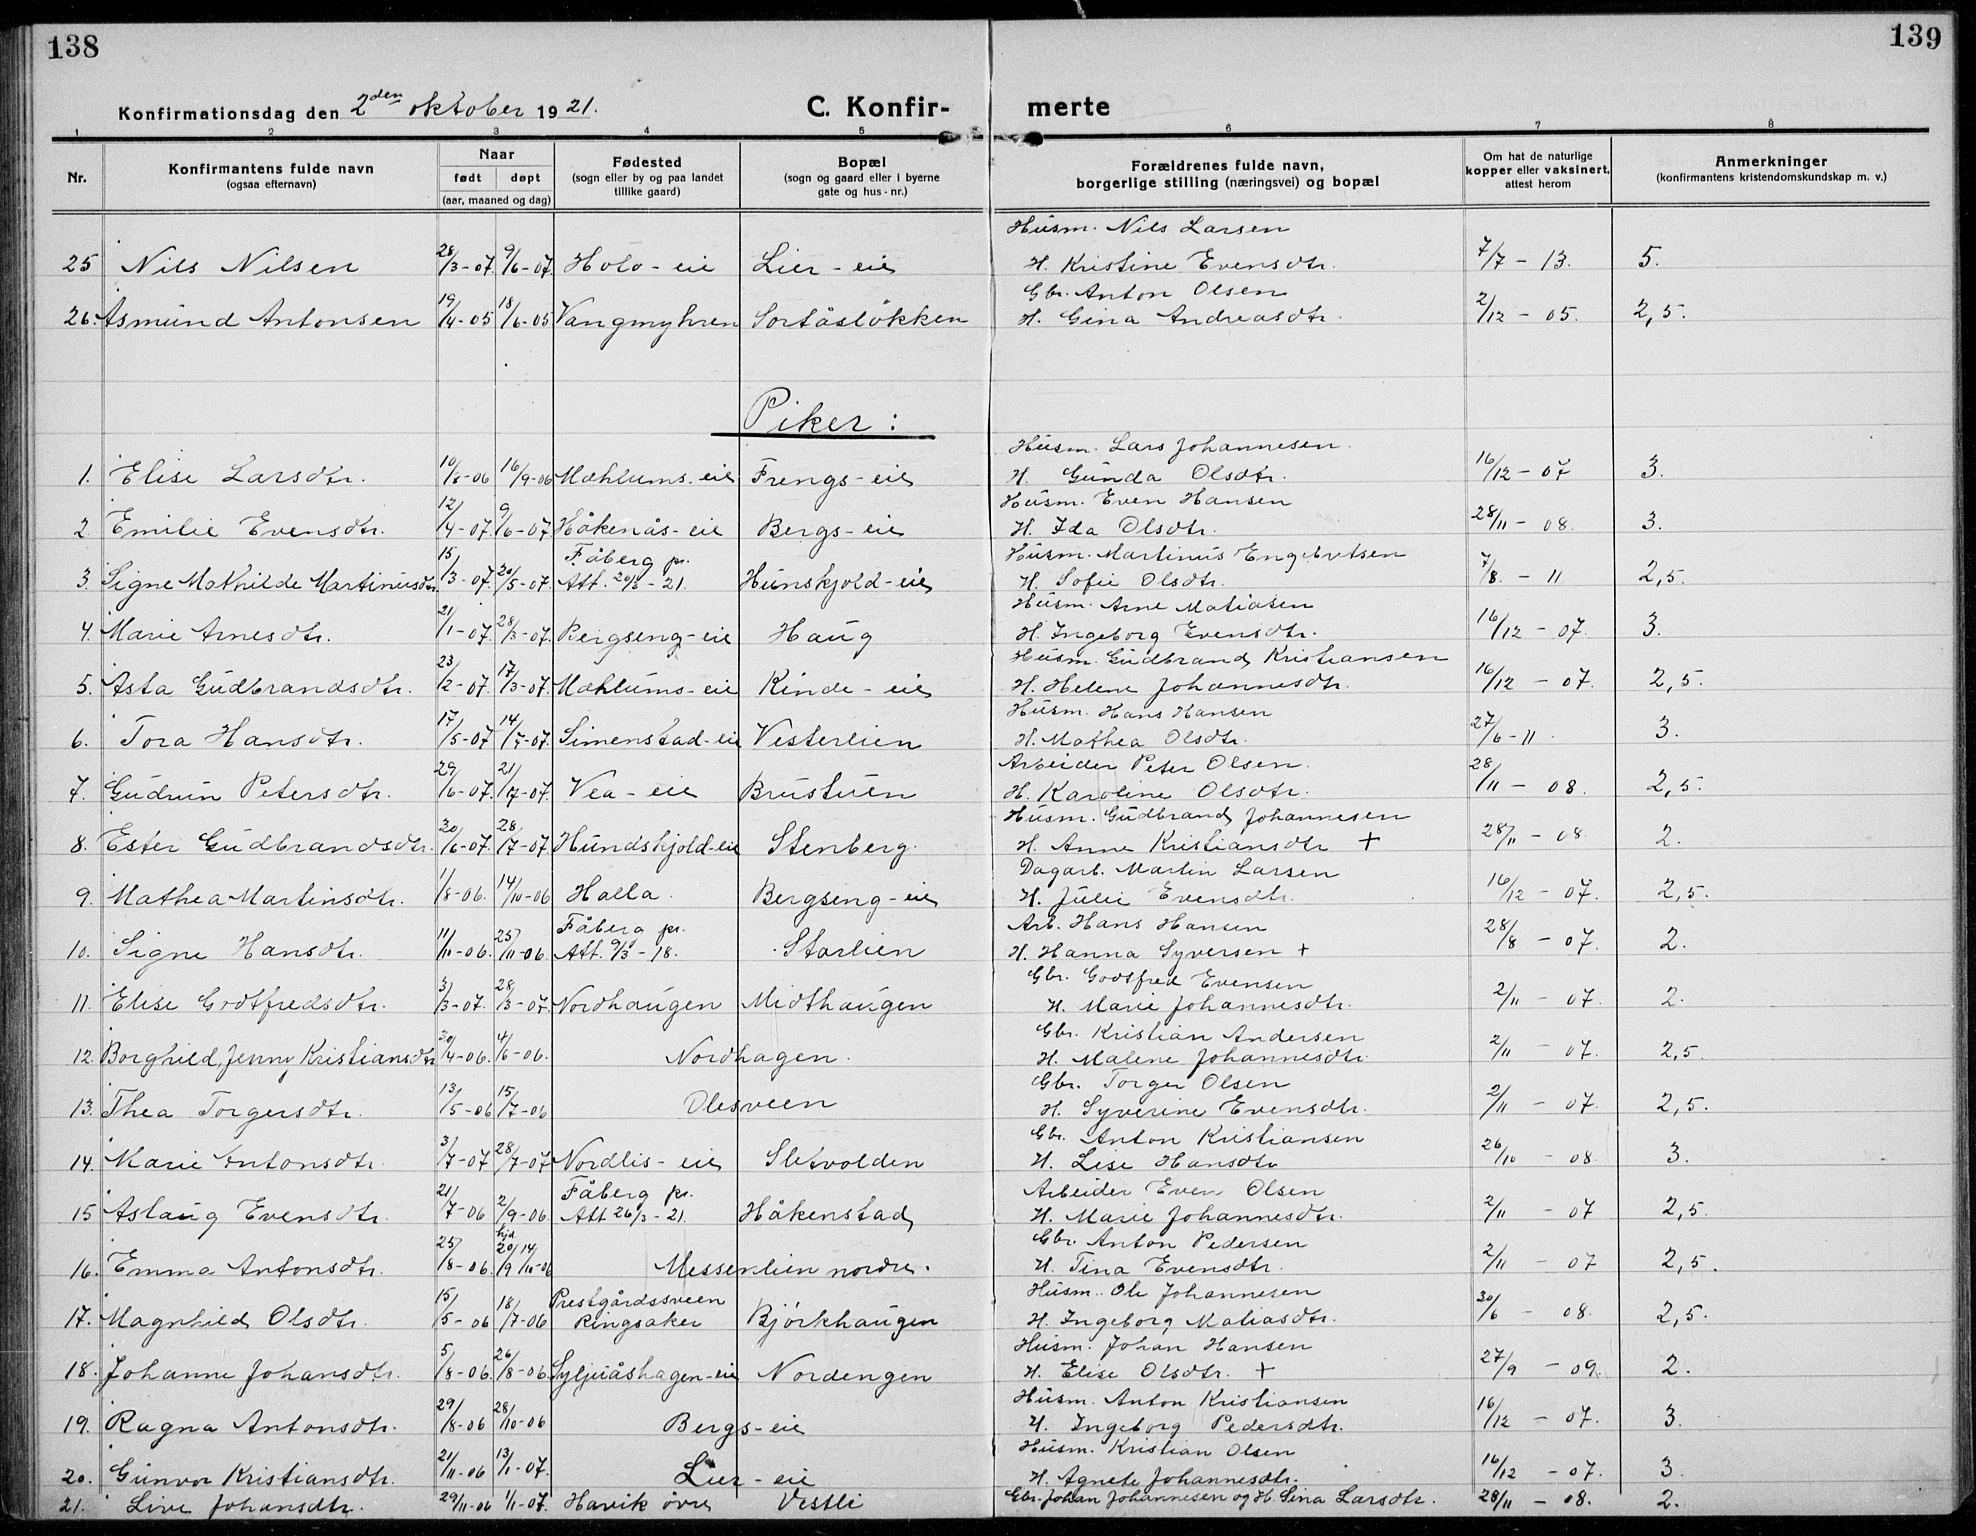 138
139
Konfirmationsdag den 2den oktober 1921.
C. Konfir- merte
1 2 3 4 5 6 7 8
Nr. | Konfirmantens fulde navn (ogsaa efternavn) | Naar født døpt (aar, maaned og dag) | Fødested (sogn eller by og paa landet tillike gaard) | Bopæl (sogn og gaard eller i byerne gate og hus-nr.) | Forældrenes fulde navn, borgerlige stilling (næringsvei) og bopæl | Om hat de naturlige kopper eller vaksinert, attest herom | Anmerkninger (konfirmantens kristendomskundskap m. v.)
25 Nils Nilsen 28/3-07. 9/6-07. Holo-eie Lier-eie Husm. Nils Larsen H. Kristine Evensdtr. 7/7-13. 5.
26. Asmund Antonsen 19/4-05 18/6-05 Vangmyhren Sortåsløkken Gbr. Anton Olsen H. Gina Andreasdtr. 2/12-05. 2,5.
Piker:
1. Elise Larsdtr. 10/8-06 16/9-06 Mæhlums-eie Frengs-eie Husm. Lars Johannesen. H. Gunda Olsdtr. 16/12-07 3.
2. Emilie Evensdtr. 12/4-07. 9/6-07. Håkenås-eie Bergs-eie Husm. Even Hansen H. Ida Olsdtr. 28/11-08. 3.
3. Signe Mathilde Martinusdtr. 15/3-07. 20/5-07. Fåberg pr. Att. 20/3-21. Hunskjold-eie Husm. Martinus Engebretsen H. Sofie Olsdtr. 7/8.-11 2,5.
4. Marie Arnesdtr. 21/1-07. 28/3-07. Bergseng-eie Haug Husm. Arne Matiasen H. Ingeborg Evensdtr. 16/12-07. 3.
5. Asta Gudbrandsdtr. 23/2-07. 17/3-07. Mæhlums-eie Kinde-eie Husm. Gudbrand Kristiansen H. Helene Johannesdtr. 16/12-07. 2,5.
6. Tora Hansdtr. 17/5-07 14/7-07. Simenstad-eie Vesterlien Husm. Hans Hansen H. Mathea Olsdtr. 27/6-11 3.
7. Gudrun Petersdtr. 29/6-07. 21/7-07. Vea-eie Brustuen Arbeider Peter Olsen. H. Karoline Olsdtr. 28/11-08. 2,5.
8. Ester Gudbrandsdtr. 30/6-07. 28/7-07. Hundskjold-eie Stenberg. Husm. Gudbrand Johannesen H. Anne Kristiansdtr + 28/11-08. 2.
9. Mathea Martinsdtr. 1/8-06. 14/10-06 Halla. Bergseng-eie Dagarb. Martin Larsen H. Julie Evensdtr. 16/12-07. 2,5.
10. Signe Hansdtr. 11/10-06. 25/11-06. Fåberg pr. Att. 9/3-18. Starlien Arb. Hans Hansen H. Hanna Syversen + 28/8-07. 2.
11. Elise Godtfredsdtr. 3/3-07. 28/3-07. Nordhaugen Midthaugen Gbr. Godtfred Evensen H. Marie Johannesdtr. 2/11-07. 2.
12. Borghild, Jenny Kristiansdtr 30/4-06. 4/6-06. Nordhagen. Gbr. Kristian Andersen H. Malene Johannesdtr 2/11-07. 2,5.
13. Thea Torgersdtr. 13/5-06 15/7-06 Olesveen Gbr. Torger Olsen H. Syverine Evensdtr. 2/11-07. 2,5.
14. Marie Antonsdtr. 3/7-07 28/7-07 Nordlis-eie Sletvolden Gbr. Anton Kristiansen H. Lise Hansdtr 26/10-08. 3.
15 Aslaug Evensdtr. 21/7-06 2/9-06. Fåberg pr. Att. 26/3-21. Håkenstad Arbeider Even Olsen H. Marie Johannesdtr. 2/11-07 2,5.
16. Emma Antonsdtr. 25/8-06. hjd. 20/9 14/10-06 Messenlien nordre. Gbr. Anton Pedersen H. Tina Evensdtr. 2/11-07 2,5.
17. Magnhild Olsdtr. 15/5-06 18/7-06 Prestgårdssveen Ringsaker Bjørkhaugen Husm. Ole Johannesen H. Ingeborg Matiasdtr. 30/6-08. 2,5.
18. Johanne Johansdtr. 5/8-06. 26/8-06. Syljuåshagen-eie Nordengen Husm. Johan Hansen H. Elise Olsdtr. + 27/9-09. 2.
19. Ragna Antonsdtr. 29/8-06 28/10-06 Bergs-eie Husm. Anton Kristiansen H. Ingeborg Pedersdtr. 16/12-07. 3.
20. Gunvor Kristiansdtr. 21/11-06 13/1-07. Lier-eie Husm. Kristian Olsen H. Agnete Johannesdtr. 16/12-07. 3.
21. Live Johansdtr. 29/11-06 1/1-07. Havik øvre Vestli Gbr. Johan Johannesen og H. Sina Larsdtr. 28/11-08. 2.